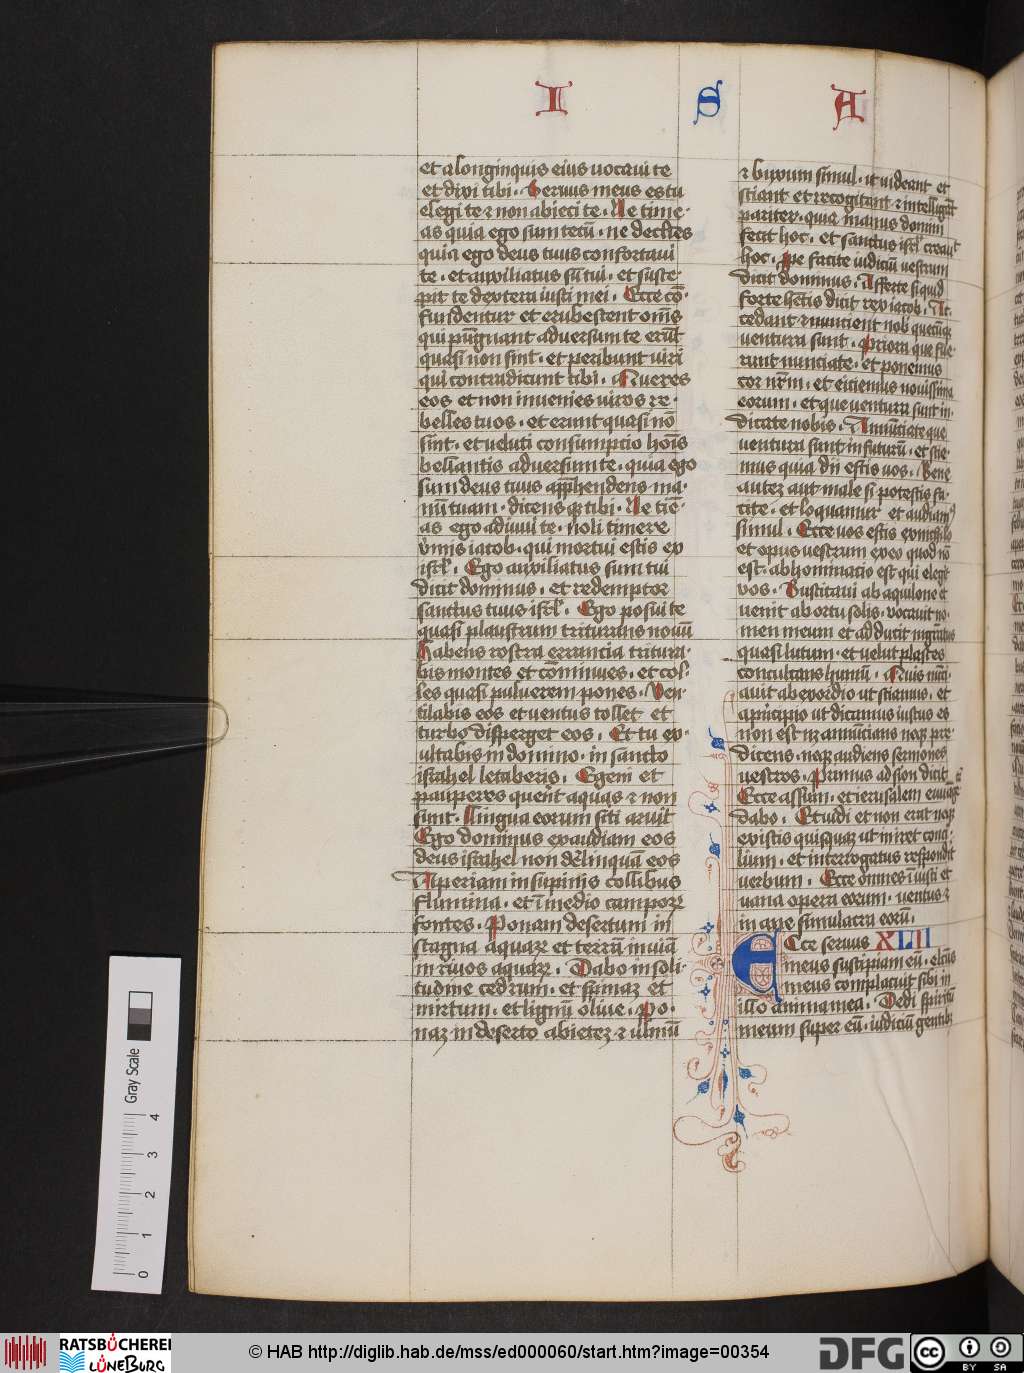 I S A
et a longinquis eius uocaui te
et dixi tibi . Seruus meus es tu
elegi te ⁊ non abieci te . Ne time-
as quia ego sum tecū . ne declies
quia ego deus tuus confortaui
te . et auxiliatus sū tui . et susce-
pit te dextera iusti mei . Ecce cō-
fundentur et erubescent om̄s
qui pugnant aduersum te erūt
quasi non sint . et peribunt uiri
qui contradicunt tibi . Queres
eos et non inuenies uiros re-
belles tuos . et erunt quasi nō
sint . et ueluti consumptio hoīs
bellantis aduersum te . quia ego
sum deus tuus app̄hendens ma-
nū tuam . dicens q; tibi . Ne tiē-
as ego adiuui te . noli timere
v̄mis iacob . qui mortui estis ex
isrl̄ . Ego auxiliatus sum tui
dicit dominus . et redemptor
sanctus tuus isrl̄ . Ego posui te
quasi plaustrum triturans nouū
habens rostra serrancia tritura-
bis montes et cōminues . et col-
les quasi puluerem pones . Uen-
tilabis eos et uentus tollet et
turbo disperget eos . Et tu ex-
ultabis in domino . in sancto
israhel letaberis . Egeni et
pauperes querūt aquas ⁊ non
sunt . Lingua eorum siti aruit
Ego dominus exaudiam eos
deus israhel non derlinquā eos
Aperiam in supinis collibus
flumina . et ī medio camporꝝ
fontes . Ponam desertum in
stagna aquarꝝ et terrā inuiā
in riuos aquarꝝ . Dabo in soli-
tudine cedrum . et spinaz et
mirtum . et lignū oliue . Po-
naz in deserto abietez ⁊ ulmū
⁊ buxum simul . ut uideant et
sciant et recogitant ⁊ intelligāt
pariter . quia manus domini
fecit hoc . et sanctus isrl̄ creauit
hoc . Pe facite iudiciū uestrum
dicit dominus . Afferte si quid
forte hētis dicit rex iacob . Ac-
cedant ⁊ nuncient nob̄ quecūq;
uentura sunt . Priora que fue-
runt nunciate . et ponemus
cor nr̄m . et sciemus nouissima
eorum . et que uentura sunt in-
dicate nobis . Annūciate que
uentura sunt in futurū . et scie-
mus quia dii estis uos . Bene
autez aut male si potestis fa-
cite . et loquamur et audiamꝰ
simul . Ecce uos estis ex nichilo
et opus uestrum ex eo quod nō
est . abhominacio est qui elegit
vos . Suscitaui ab aquilone et
uenit ab ortu solis . uocauit no-
men meum et adducit mgr̄atus
quasi lutum . et uelut plastes
conculcans humū . Quis nūci-
auit ab exordio ut sciamus . et
a p̄ncipio ut dicamus iustus es
non est neq; annūcians neq; pre-
dicens . neq; audiens sermones
uestros . Primus ad sion dicit
Ecce assum . et ierusalem euuāge-
dabo . Et uidi et non erat neq;
existis quisquaz ut iniret consi-
lium . et interrogatus respondit
uerbum . Ecce om̄nes iniusti et
uana opera eorum . uentus ⁊
inane simulacra eorū .
Ecce seruus XLII
meus suscipiam eū . electus
meus complacuit sibi in
illo anima mea . Dedi spiritū
meum super eū . iudiciū gentibꝫ
Gray Scale
0 1 2 3 4
RATSBÜCHEREI
LÜNEBURG
© HAB http://diglib.hab.de/mss/ed000060/start.htm?image=00354
DFG
cc BY SA